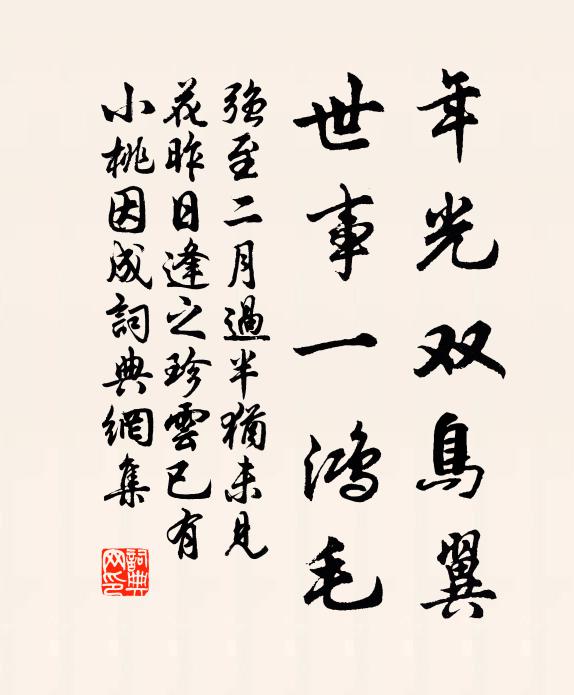 年光双鳥翼
世事一鴻毛
強至二月過半猶未見
花昨日逢之珍雲已有
小桃因成詞典網集
詞典
网印